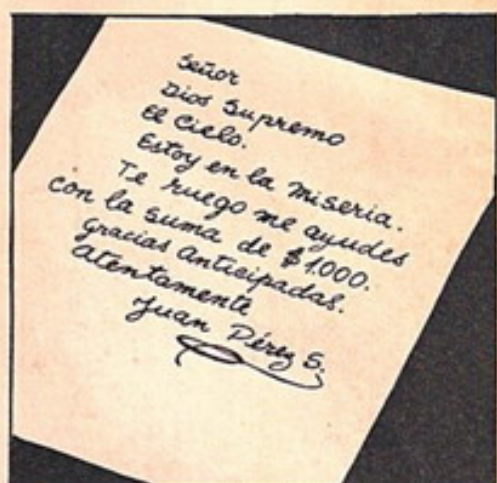 Señor
Dios Supremo
El Cielo.
Estoy en la miseria.
Te ruego me ayudes
con la suma de $1.000.
Gracias anticipadas.
Atentamente
Juan Pérez S.